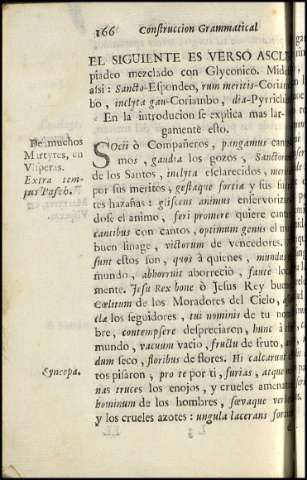 166 Construccion Grammatical
EL SIGUIENTE ES VERSO ASCLE
piadeo mezclado con Glyconico. Mide
assi: Sancto-Espondeo, rum meritis-Coriam
bo, inclyta gau-Coriambo, dia-Pyrrichi
En la introducion se explica mas lar-
gamente esto.
De muchos
Martyres, en
Visperas.
Extra tem-
pus Pasch.
SOcii ò Compañeros, pangamus cant
mos, gaudia los gozos, Sanctorum
de los Santos, inclyta esclarecidos, meri
por sus meritos, gestaque fortia y sus fuer
tes hazañas: gliscens animus enfervoriz
dose el animo, feri promere quiere cant
cantibus con cantos, optimum genus el m
buen linage, victorum de vencedores.
sunt estos son, quos à quienes, mundus
mundo, abhorruit aborreciò, fatuè loc
mente. Jesu Rex bone ò Jesus Rey buen
Cœlitum de los Moradores del Cielo, as
clæ los seguidores, tui nominis de tu no
bre, contempsere despreciaron, hunc à
mundo, vacuum vacio, fructu de fruto, ari
dum seco, floribus de flores. Hi calcarunt
tos pisaron, pro te por ti, furias, atque m
Syncopa.
nas truces los enojos, y crueles amena
hominum de los hombres, sævaque verb
y los crueles azotes: ungula lacerans forti